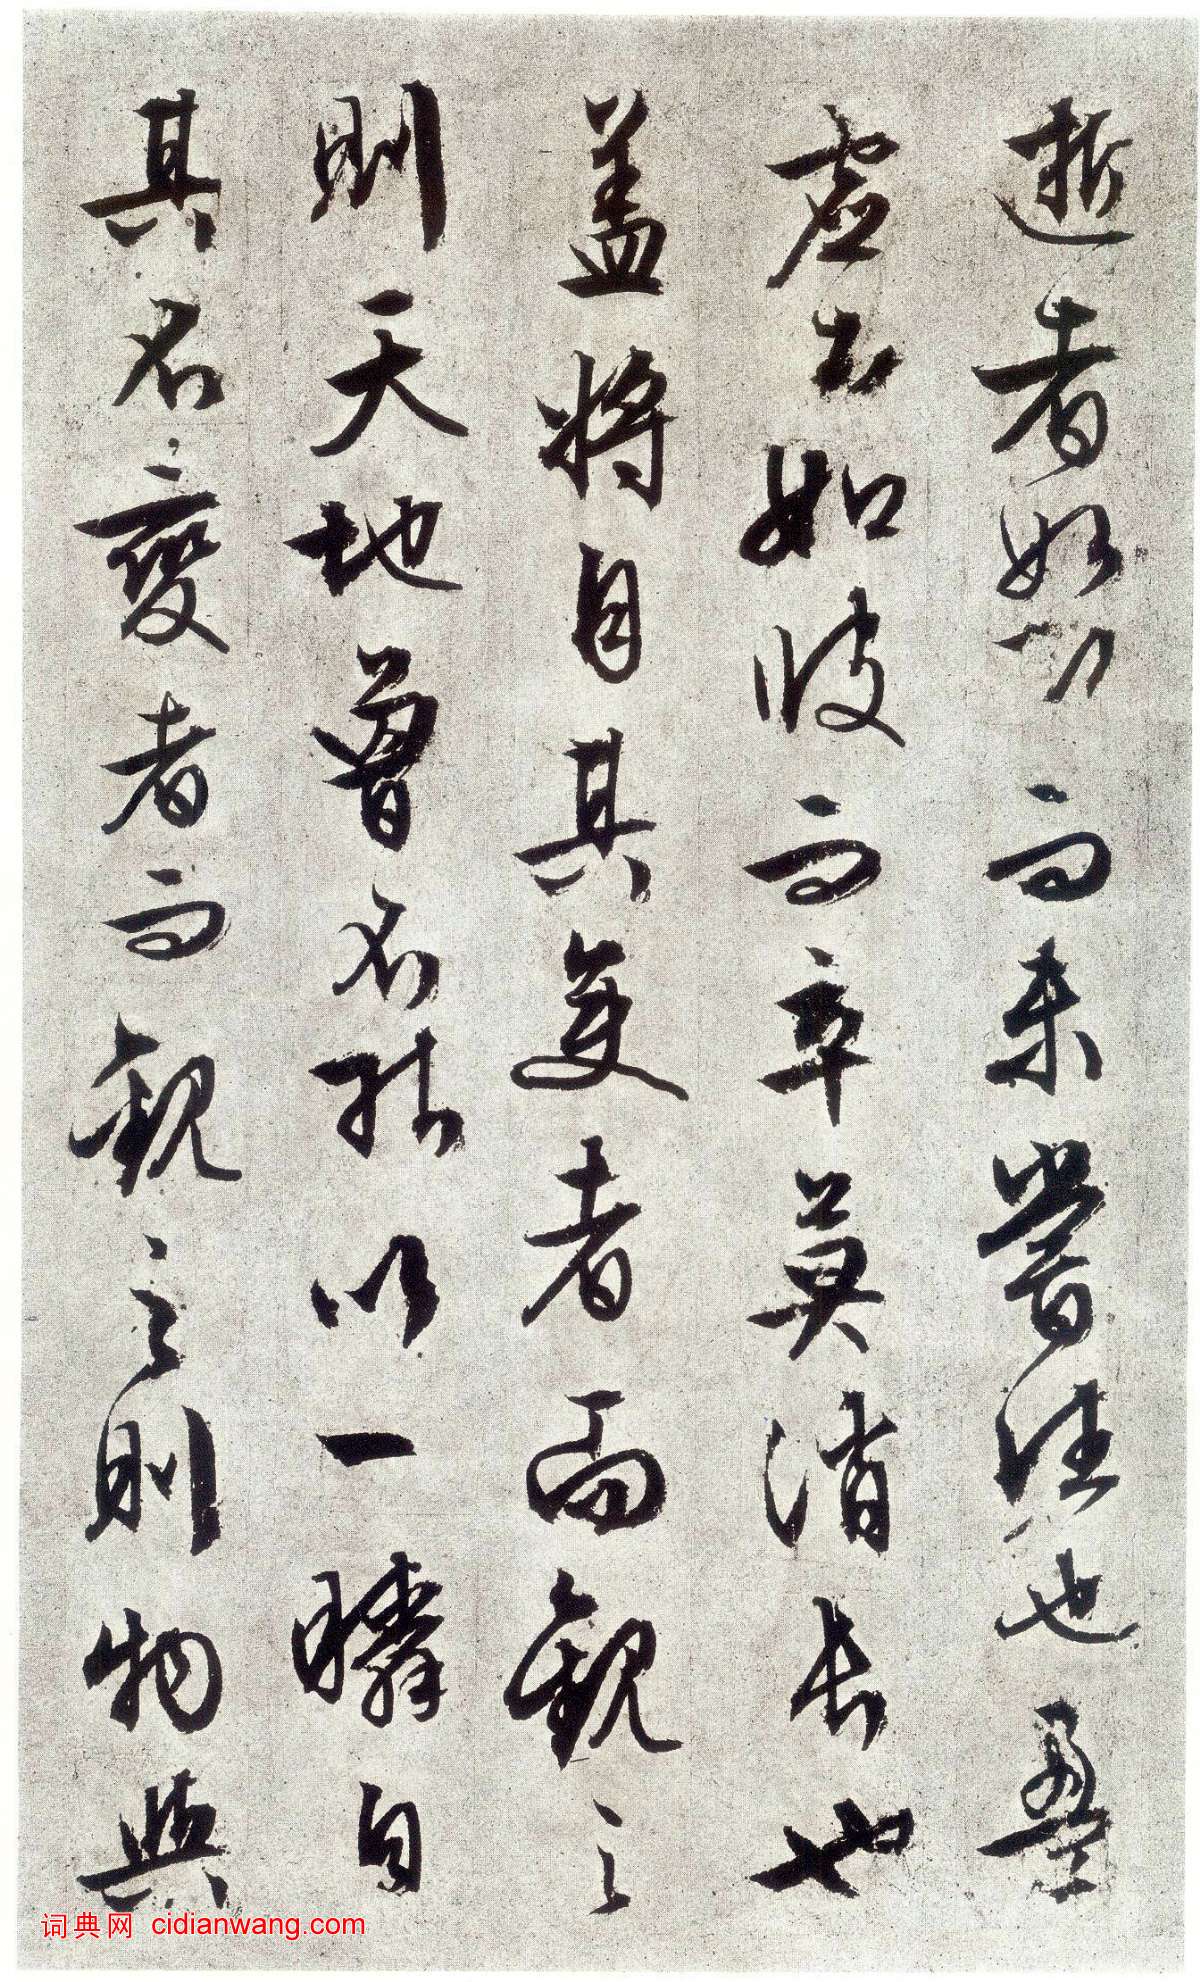 逝者如斯而未嘗往也盈
虛者如彼而卒莫消長也
盖將自其變者而觀之
則天地曾不能以一瞬自
其不變者而觀之則物與
词典网 cidianwang.com